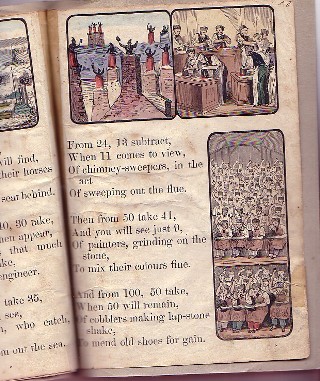 ill find,
heir horses
sear behind.
10, 30 take,
hen appear,
that much
ke.
engineer.
take 35,
sea,
who catch
om our the sea.
From 24, 13 subtract,
When 11 comes to view,
Of chimney-sweepers, in the
act
Of sweeping out the flue.
Then from 50 take 41,
And you will see just 9,
Of painters, grinding on the
stone,
To mix their colours fine.
And from 100, 50 take,
When 50 will remain,
Of cobblers making lap-stone
shake,
To mend old shoes for gain.